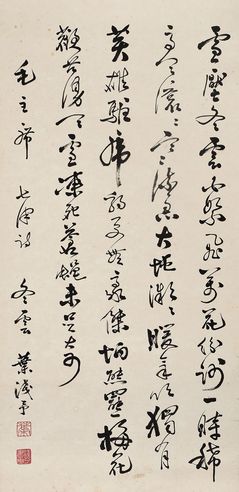 雪壓冬雲白絮飛萬花紛謝一時稀
高天滚〻寒流急大地微〻暖氣吹獨有
英雄驅虎豹更無豪傑怕熊羆梅花
歡喜漫天雪凍死蒼蠅未足奇
毛主席 七律詩 冬雲 葉淺予